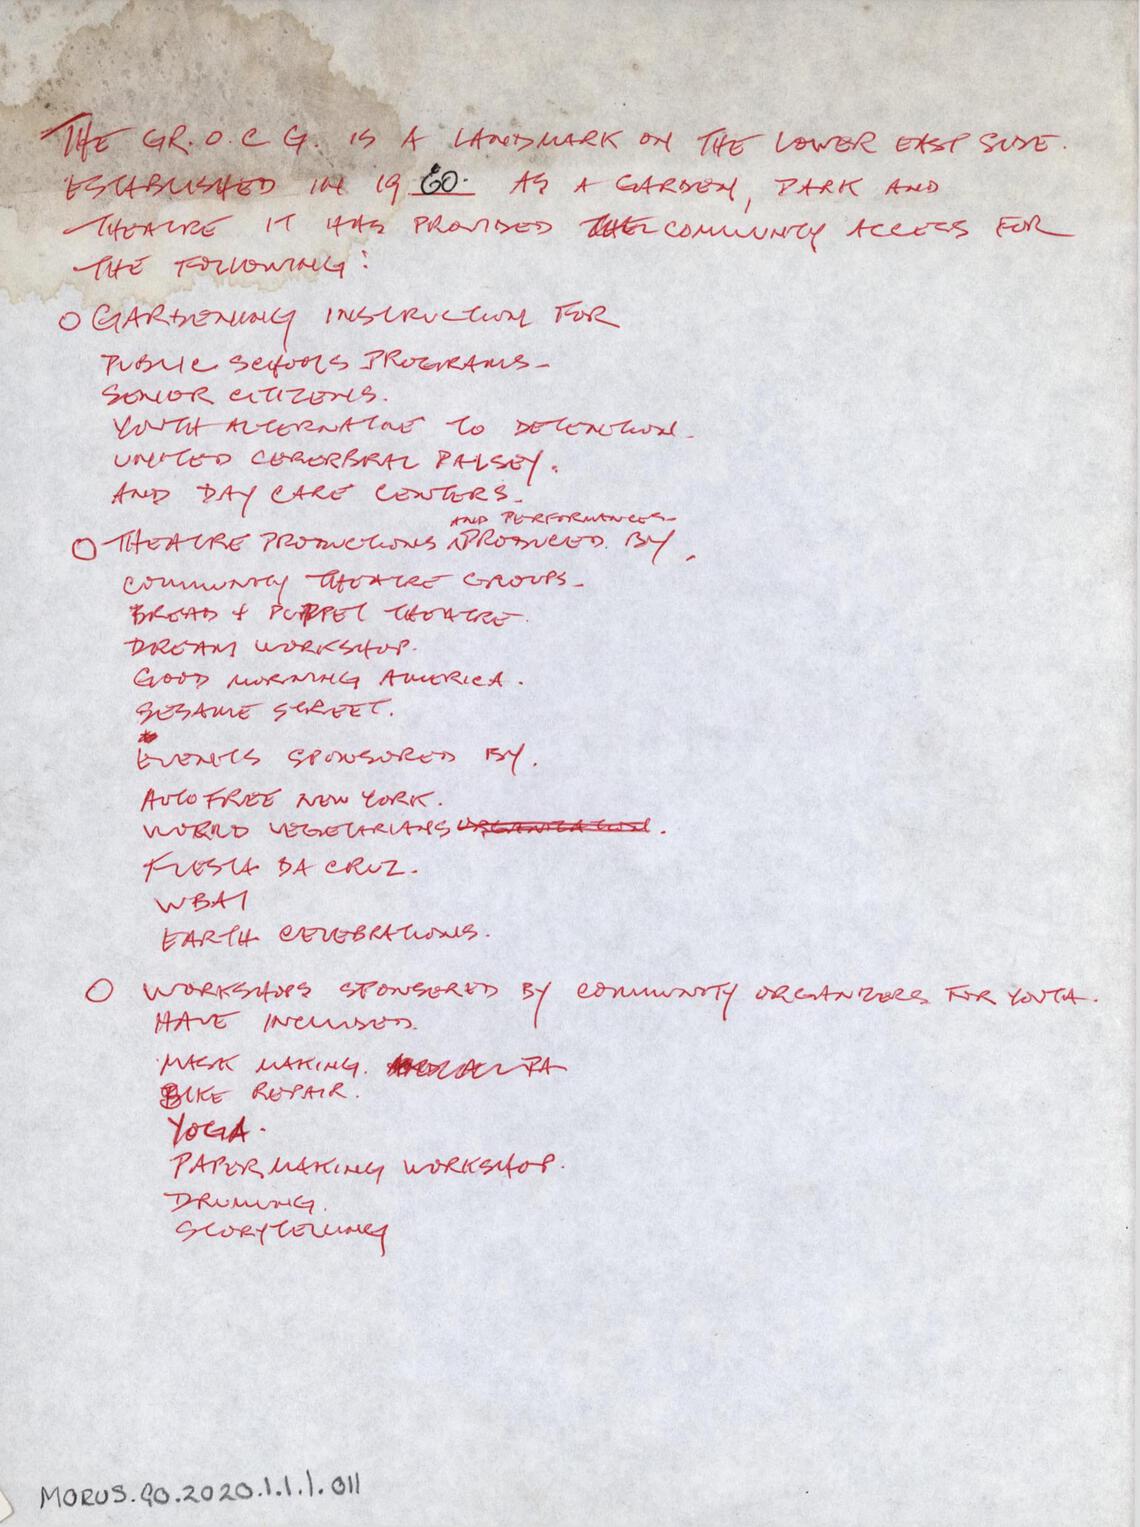 THE GR. O. C G. IS A LANDMARK ON THE LOWER EAST SIDE.
ESTABLISHED IN 19 60. AS A GARDEN, PARK AND
THEATRE IT HAS PROVIDED THE COMMUNITY ACCESS FOR
THE FOLLOWING:
O GARDENING INSTRUCTION FOR
PUBLIC SCHOOLS PROGRAMS-
SENIOR CITIZENS.
YOUTH ALTERNATIVE TO DETENTION.
UNITED CERERBRAL PALSEY.
AND DAY CARE CENTERS-
AND PERFORMANCES-
O THEATRE PRODUCTIONS PRODUCED BY,
COMMUNITY THEATRE GROUPS-
BREAD + PUPPET THEATRE.
DREAM WORKSHOP.
GOOD MORNING AMERICA.
SESAME STREET.
EVENTS SPONSORED BY.
AUTO FREE NEW YORK.
WORLD VEGETARIANS ORGANIZATION.
FIESTA DA CRUZ.
WBAI
EARTH CELEBRATIONS.
O WORKSHOPS SPONSERED BY COMMUNITY ORGANIZERS FOR YOUTH.
HAVE INCLUDED.
MASK MAKING.
BIKE REPAIR.
YOGA.
PAPER MAKING WORKSHOP.
DRUMING.
STORYTELLING
MORUS.90.2020.1.1.1.011